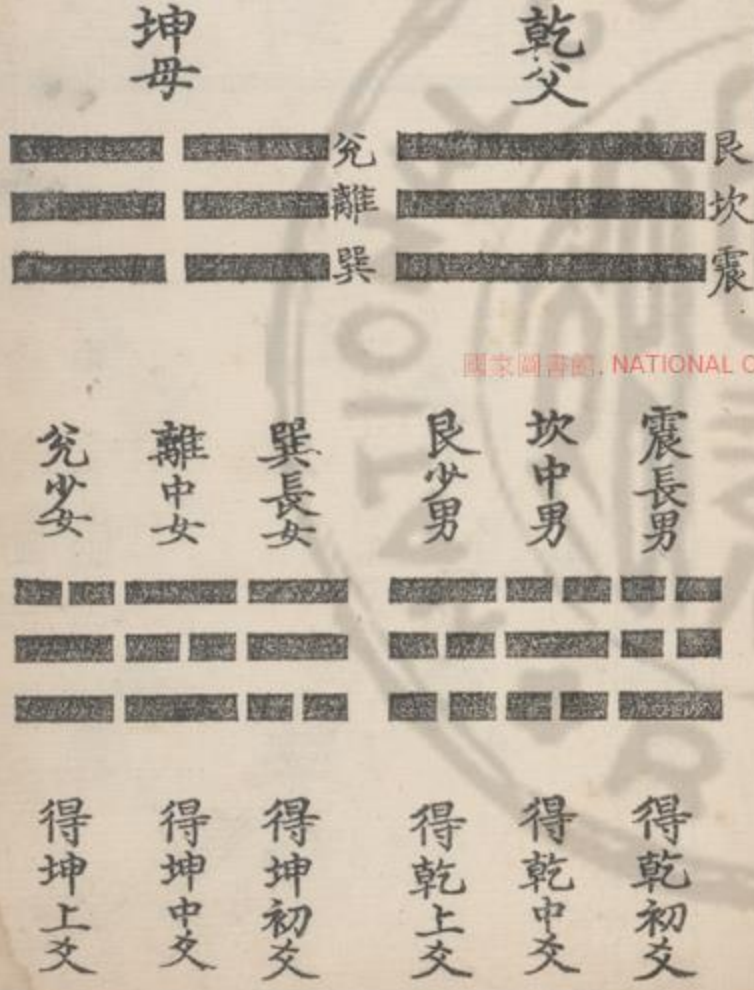 乾父
艮
坎
震
坤母
兌
離
巽
國家圖書館. NATIONAL C
震長男
坎中男
艮少男
巽長女
離中女
兌少女
得乾初爻
得乾中爻
得乾上爻
得坤初爻
得坤中爻
得坤上爻